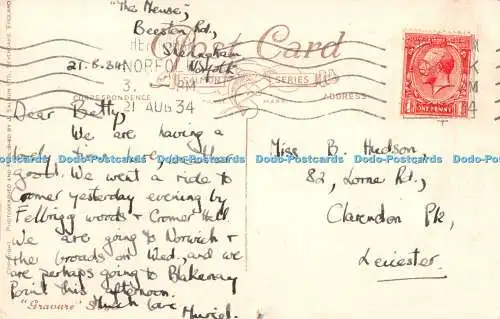 "The Meuse",
Beeston Rd,
Sheringham
Norfolk
21.8.34.
Post Card
SALMON SERIES
NORFO
3. PM
21 AUG 34
CORRESPONDENCE
ADDRESS
ONE PENNY
Dear Betty,
We are having a
lovely time here, weather
good. We went a ride to
Cromer yesterday evening by
Felbrigg woods & Cromer Hall
We are going to Norwich &
the broads on Wed., and we
are perhaps going to Blakeney
Point this afternoon.
Much love
Muriel.
Miss B. Hudson,
82, Lorne Rd.,
Clarendon Pk,
Leicester.
"Gravure" S
Dodo-Postcards Dodo-Postcards Dodo-Postcards Dodo-Postcards Dodo-Postcards Dodo-Postcards